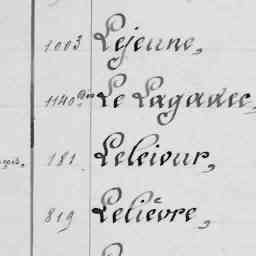 1003 Lejeune,
1140 bis Le Lagadec,
181 Leleiour,
819 Lelièvre,